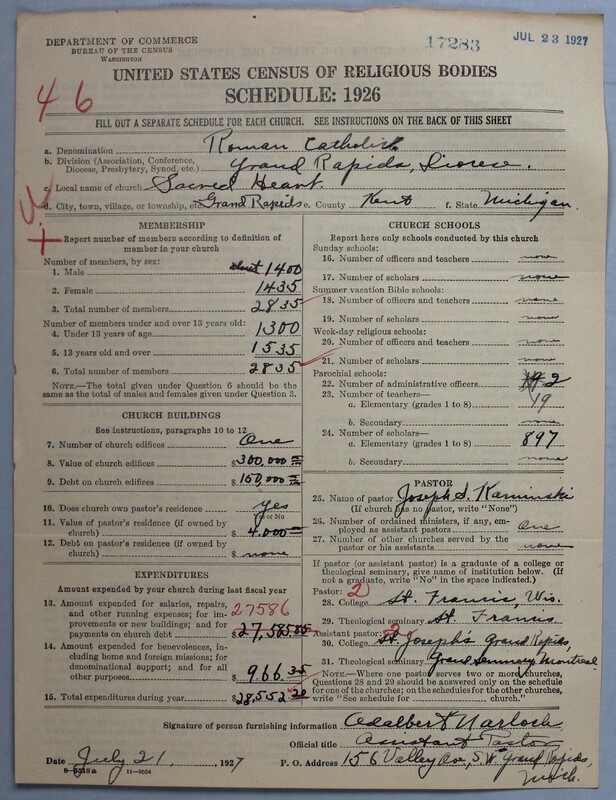 DEPARTMENT OF COMMERCE
BUREAU OF THE CENSUS
WASHINGTON
17283
JUL 23 1927
UNITED STATES CENSUS OF RELIGIOUS BODIES
SCHEDULE: 1926
46
FILL OUT A SEPARATE SCHEDULE FOR EACH CHURCH. SEE INSTRUCTIONS ON THE BACK OF THIS SHEET
a. Denomination Roman Catholic
b. Division (Association, Conference, Diocese, Presbytery, Synod, etc.) Grand Rapids, Diocese.
c. Local name of church Sacred Heart.
d. City, town, village, or township, etc. Grand Rapids e. County Kent f. State Michigan.
MEMBERSHIP
Report number of members according to definition of
member in your church
Number of members, by sex:
1. Male 1400
2. Female 1435
3. Total number of members 2835
Number of members under and over 13 years old:
4. Under 13 years of age 1300
5. 13 years old and over 1535
6. Total number of members 2835
NOTE.—The total given under Question 6 should be the
same as the total of males and females given under Question 3.
CHURCH BUILDINGS
See instructions, paragraphs 10 to 12
7. Number of church edifices One
8. Value of church edifices $300,000
9. Debt on church edifices $150,000
10. Does church own pastor's residence yes
Yes or No
11. Value of pastor's residence (if owned by
church) $4,000
12. Debt on pastor's residence (if owned by
church) $ none
EXPENDITURES
Amount expended by your church during last fiscal year
13. Amount expended for salaries, repairs,
and other running expenses; for im-
provements or new buildings; and for
payments on church debt $27,585.85
27586
14. Amount expended for benevolences,
including home and foreign missions; for
denominational support; and for all
other purposes $966.35
15. Total expenditures during year $28,552.20
CHURCH SCHOOLS
Report here only schools conducted by this church
Sunday schools:
16. Number of officers and teachers none
17. Number of scholars none
Summer vacation Bible schools:
18. Number of officers and teachers none
19. Number of scholars none
Week-day religious schools:
20. Number of officers and teachers none
21. Number of scholars none
Parochial schools:
22. Number of administrative officers 2
23. Number of teachers—
a. Elementary (grades 1 to 8) 19
b. Secondary none
24. Number of scholars—
a. Elementary (grades 1 to 8) 897
b. Secondary none
PASTOR
25. Name of pastor Joseph S. Kaminski
(If church has no pastor, write "None")
26. Number of ordained ministers, if any, em-
ployed as assistant pastors One
27. Number of other churches served by the
pastor or his assistants none
If pastor (or assistant pastor) is a graduate of a college or
theological seminary, give name of institution below. (If
not a graduate, write "No" in the space indicated.)
Pastor: 2
28. College St. Francis, Wis.
29. Theological seminary St. Francis
Assistant pastor: 2
30. College St. Joseph's Grand Rapids,
31. Theological seminary Grand Seminary Montreal
NOTE.—Where one pastor serves two or more churches,
Questions 28 and 29 should be answered only on the schedule
for one of the churches; on schedules for the other churches,
write "See schedule for church."
Signature of person furnishing information Adalbert Narloch
Official title Assistant Pastor
Date July 21, 1927 P. O. Address 156 Valley Ave, S.W. Grand Rapids,
Mich.
8—5518a 11—9054